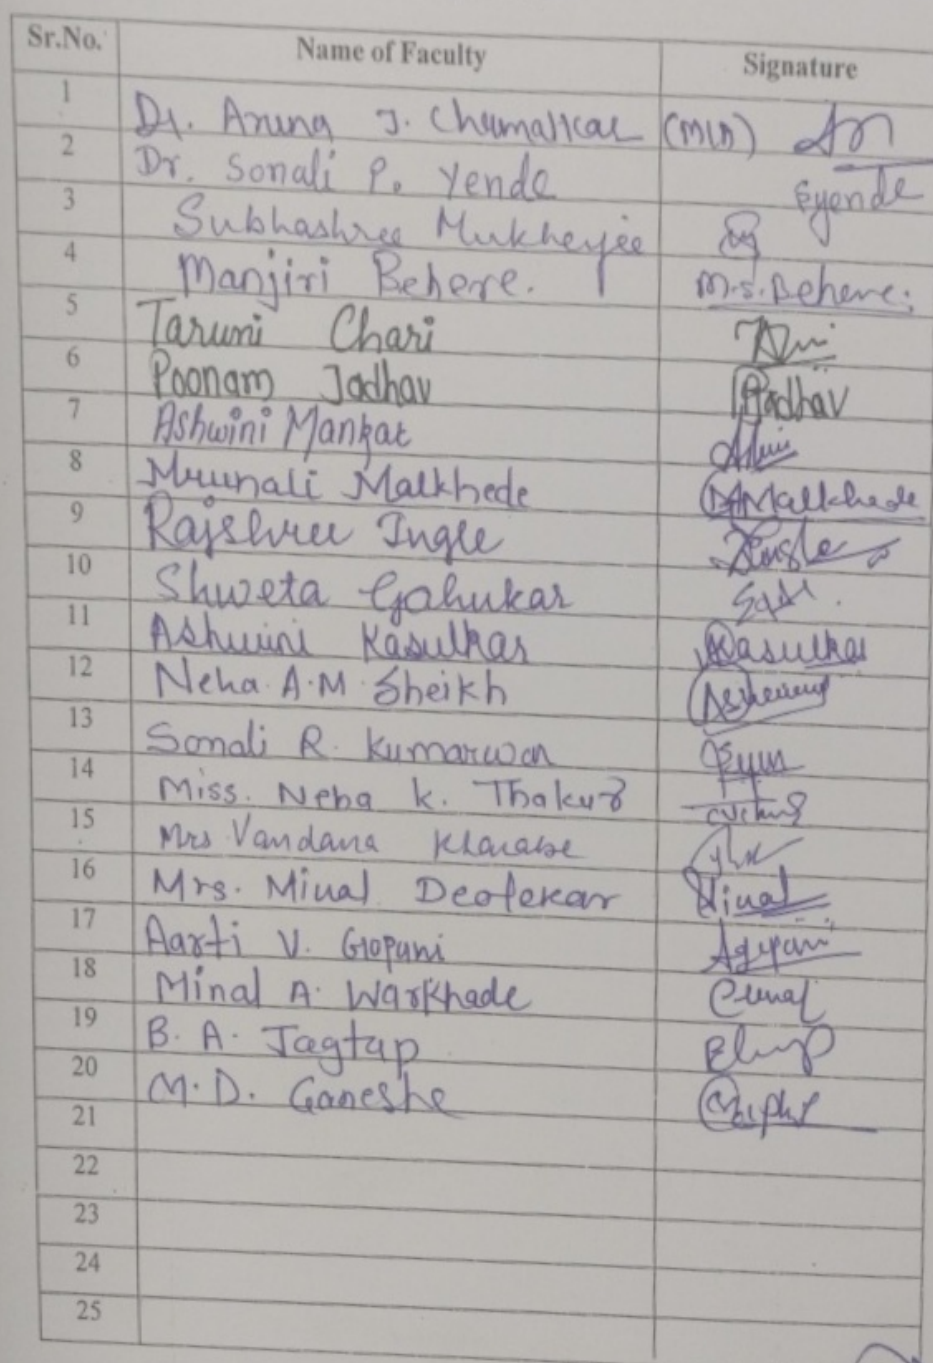 Sr.No. Name of Faculty Signature
1 Dr. Aruna J. Chumalkar (MLN)
2 Dr. Sonali P. Yende Syende
3 Subhashree Mukherjee
4 Manjiri Behere. M.S.Behere.
5 Taruni Chari
6 Poonam Jadhav PJadhav
7 Ashwini Mankar
8 Mrunali Malkhede Malkhede
9 Rajshree Ingle Ingle
10 Shweta Gahukar
11 Ashwini Kasulkar Kasulkar
12 Neha A.M. Sheikh
13 Sonali R. Kumarwar
14 Miss. Neha K. Thakur
15 Mrs Vandana Kharabe
16 Mrs. Minal Deotekar Minal
17 Aarti V. Gopani Agopani
18 Minal A. Warkhade
19 B. A. Jagtap
20 M.D. Ganeshe
21
22
23
24
25